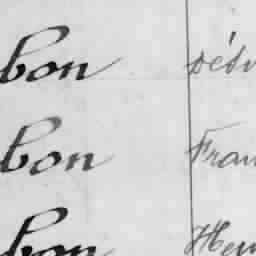 bon Dési
bon Fran
bon Hen